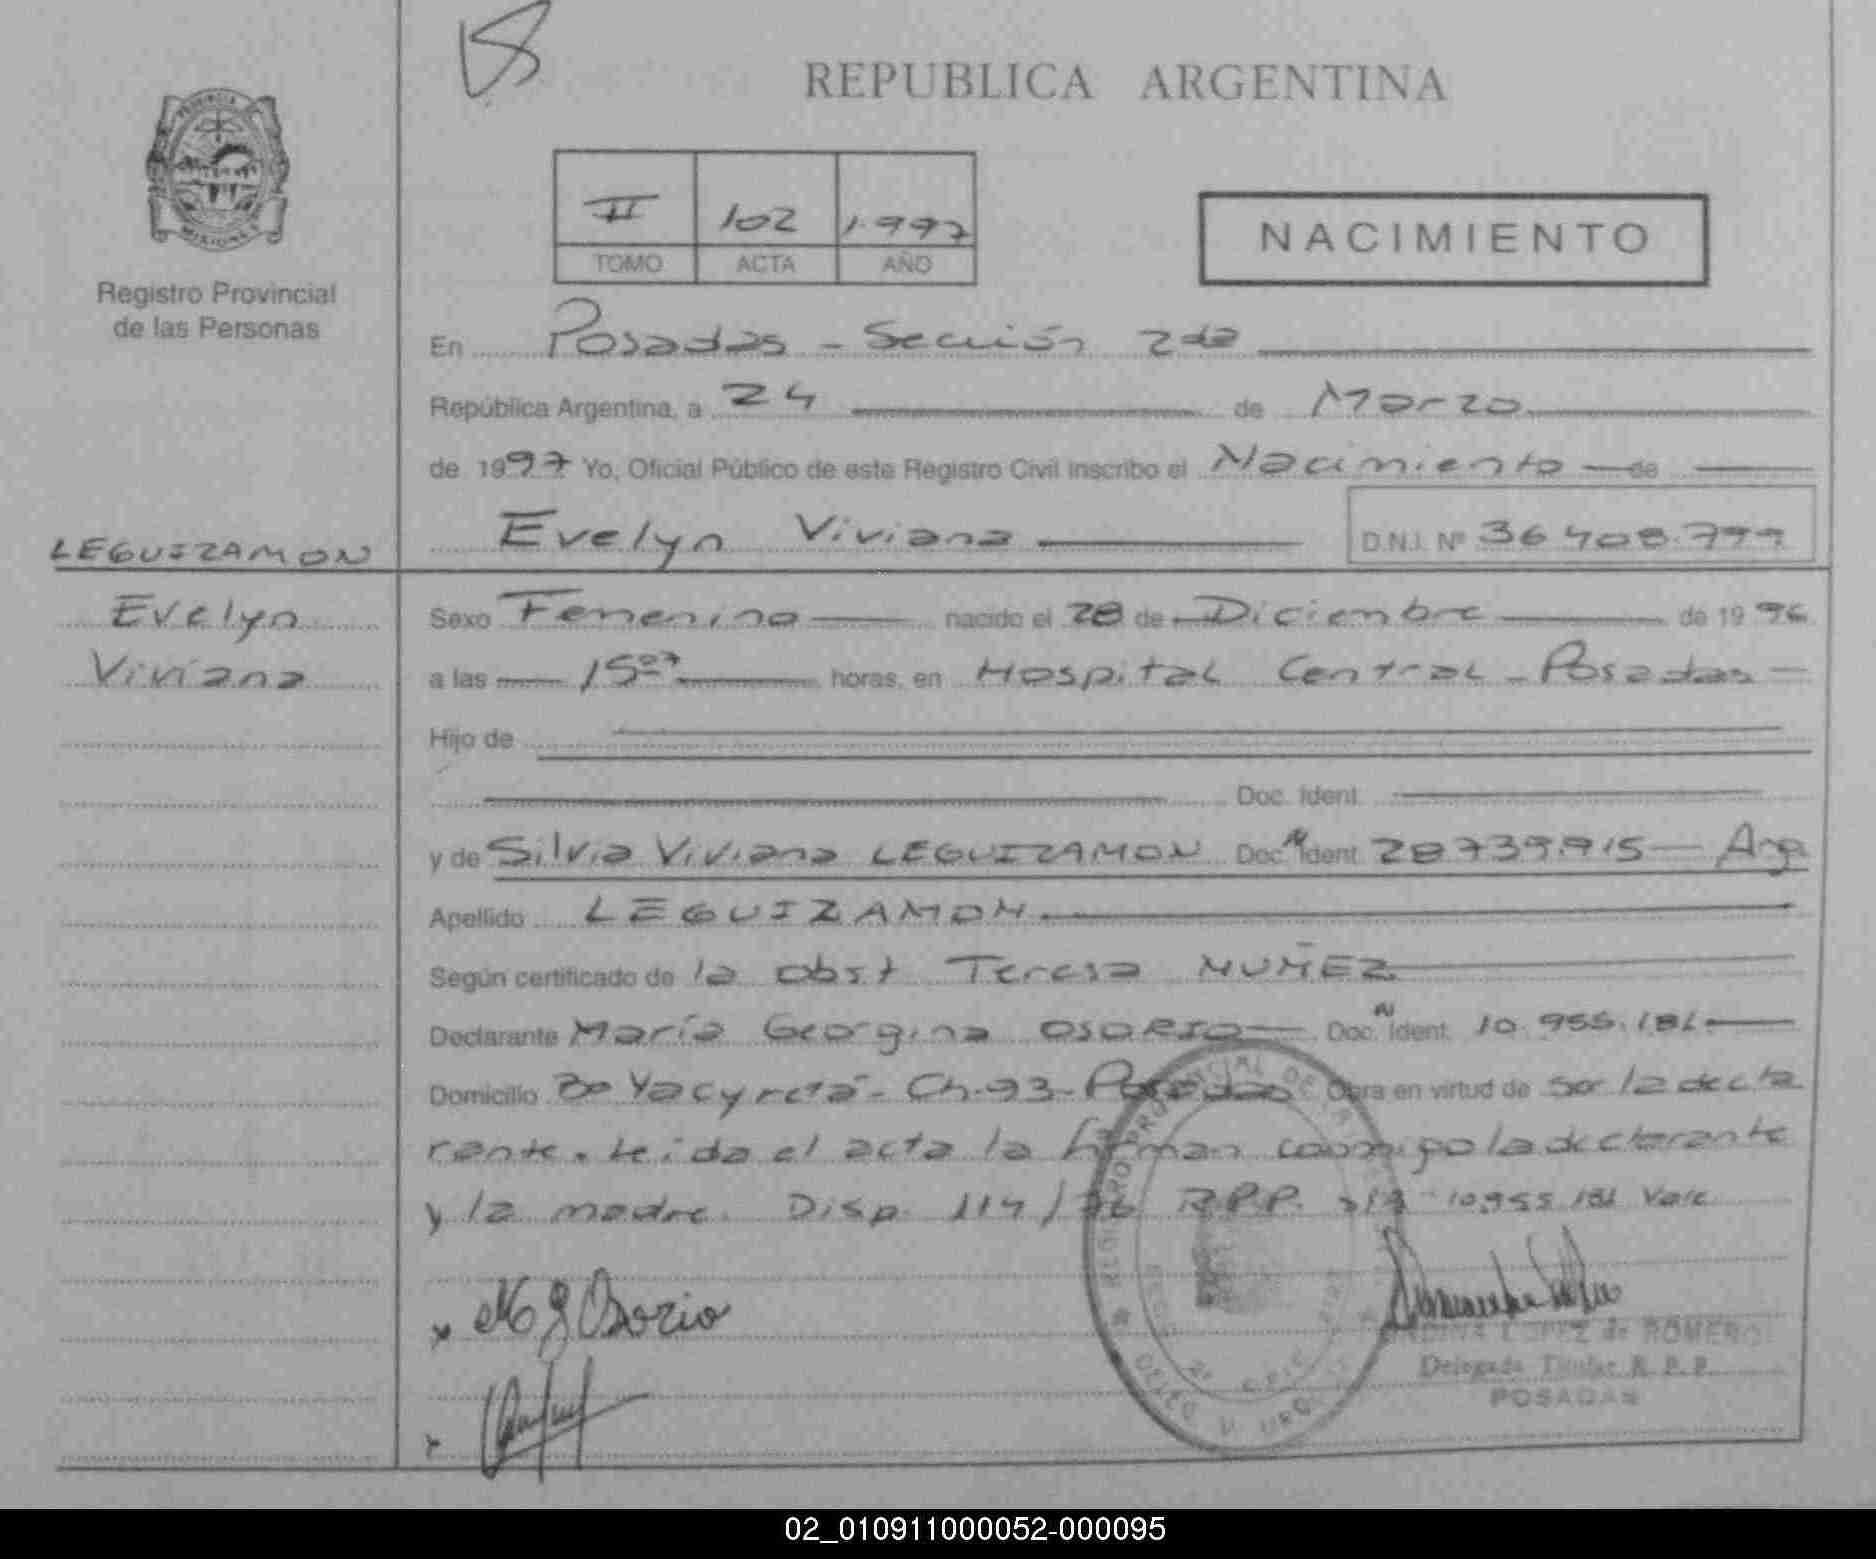 REPUBLICA ARGENTINA
PROVINCIA
MISIONES
Registro Provincial
de las Personas
II 102 1.997
TOMO ACTA AÑO
NACIMIENTO
En Posadas - Sección 2da
República Argentina, a 24 de Marzo
de 1997 Yo, Oficial Público de este Registro Civil inscribo el Nacimiento de
LEGUIZAMON
Evelyn Viviana
D.N.I. Nº 36.408.799
Evelyn
Viviana
Sexo Femenino nacido el 28 de Diciembre de 1996
a las 15 07 horas, en Hospital Central - Posadas -
Hijo de
Doc. Ident.
y de Silvia Viviana LEGUIZAMON Doc. N Ident. 28.739.915 - Arg
Apellido LEGUIZAMON
Según certificado de la obst Teresa NUÑEZ
Declarante María Georgina OSORIO Doc. N Ident. 10.955.181
Domicilio Bo Yacyretá - Ch. 93 - Posadas Obra en virtud de ser la decla
rante. Leida el acta la firman conmigo la declarante
y la madre. Disp. 114/96 R.P.P. 10.955.181 Vale
M G Osorio
LOPEZ de ROMERO
Delegada Titular R. P. P.
POSADAS
02_010911000052-000095